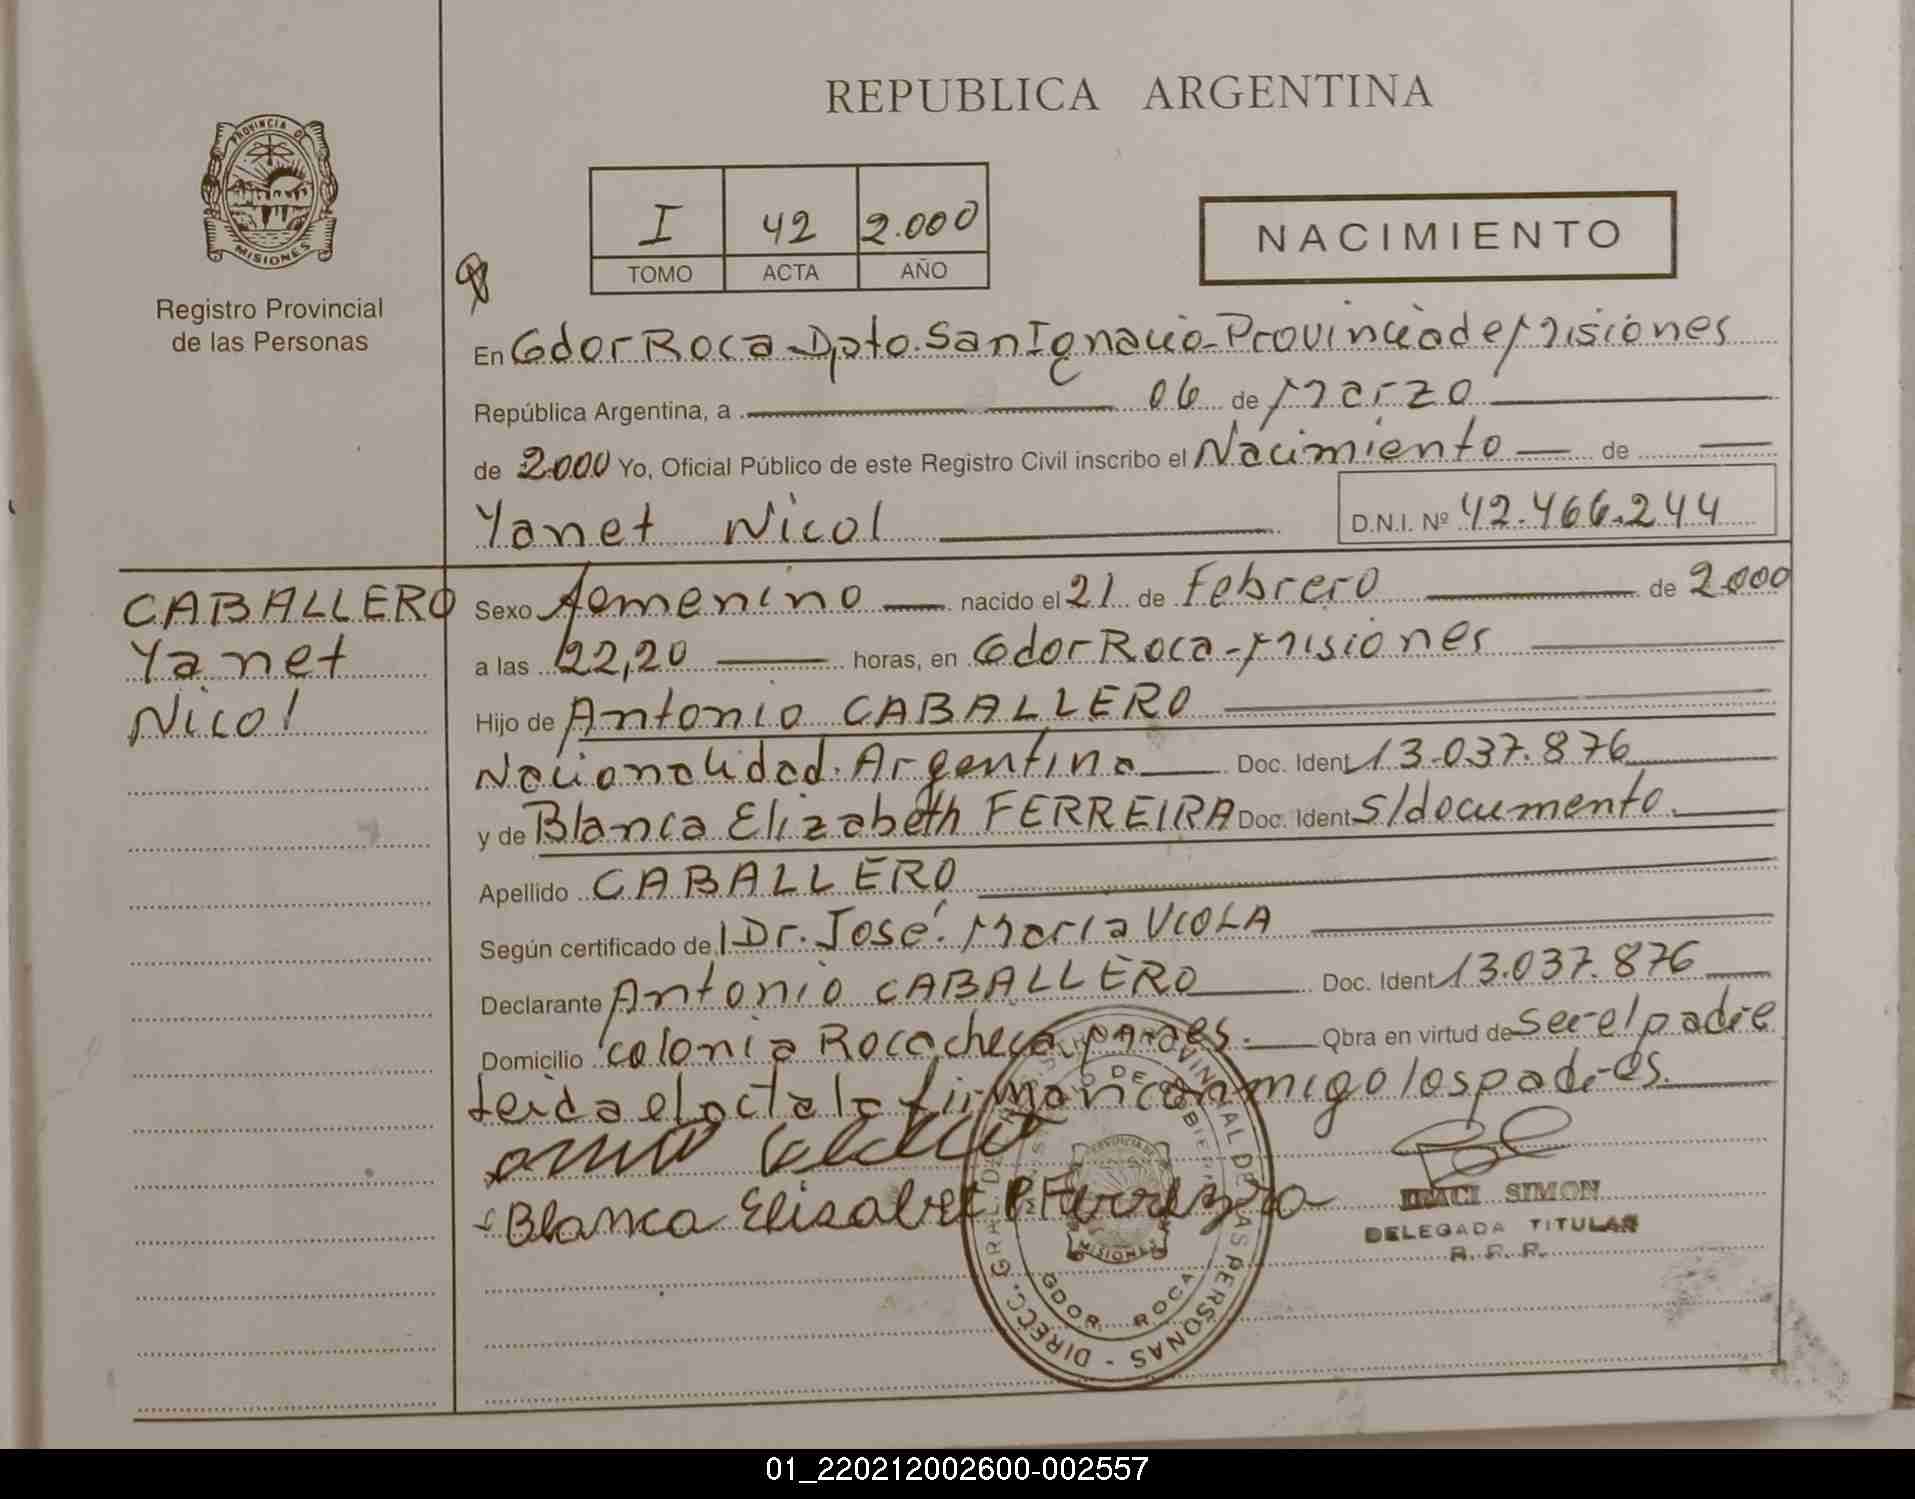 REPUBLICA ARGENTINA
PROVINCIA DE
MISIONES
Registro Provincial
de las Personas
I 42 2.000
TOMO ACTA AÑO
NACIMIENTO
En Gdor Roca Dpto. San Ignacio - Provincia de Misiones
República Argentina, a 06 de Marzo
de 2.000 Yo, Oficial Público de este Registro Civil inscribo el Nacimiento de
Yanet Nicol D.N.I. Nº 42.466.244
CABALLERO
Yanet
Nicol
Sexo femenino nacido el 21 de Febrero de 2.000
a las 22,20 horas, en Gdor Roca - Misiones
Hijo de Antonio CABALLERO
Nacionalidad. Argentina Doc. Ident 13.037.876
y de Blanca Elizabeth FERREIRA Doc. Ident S/documento.
Apellido CABALLERO
Según certificado del Dr. José María VIOLA
Declarante Antonio CABALLERO Doc. Ident 13.037.876
Domicilio colonia Roca checa Obra en virtud de ser el padre
Leida el acta la firman conmigo los padres.
Blanca Elisabet Ferreyra
IRACI SIMON
DELEGADA TITULAR
R. P. P.
DIRECC. GRAL. DEL REGISTRO PROVINCIAL DE LAS PERSONAS
MINISTERIO DE GOBIERNO
MISIONES
GDOR. ROCA
01_220212002600-002557